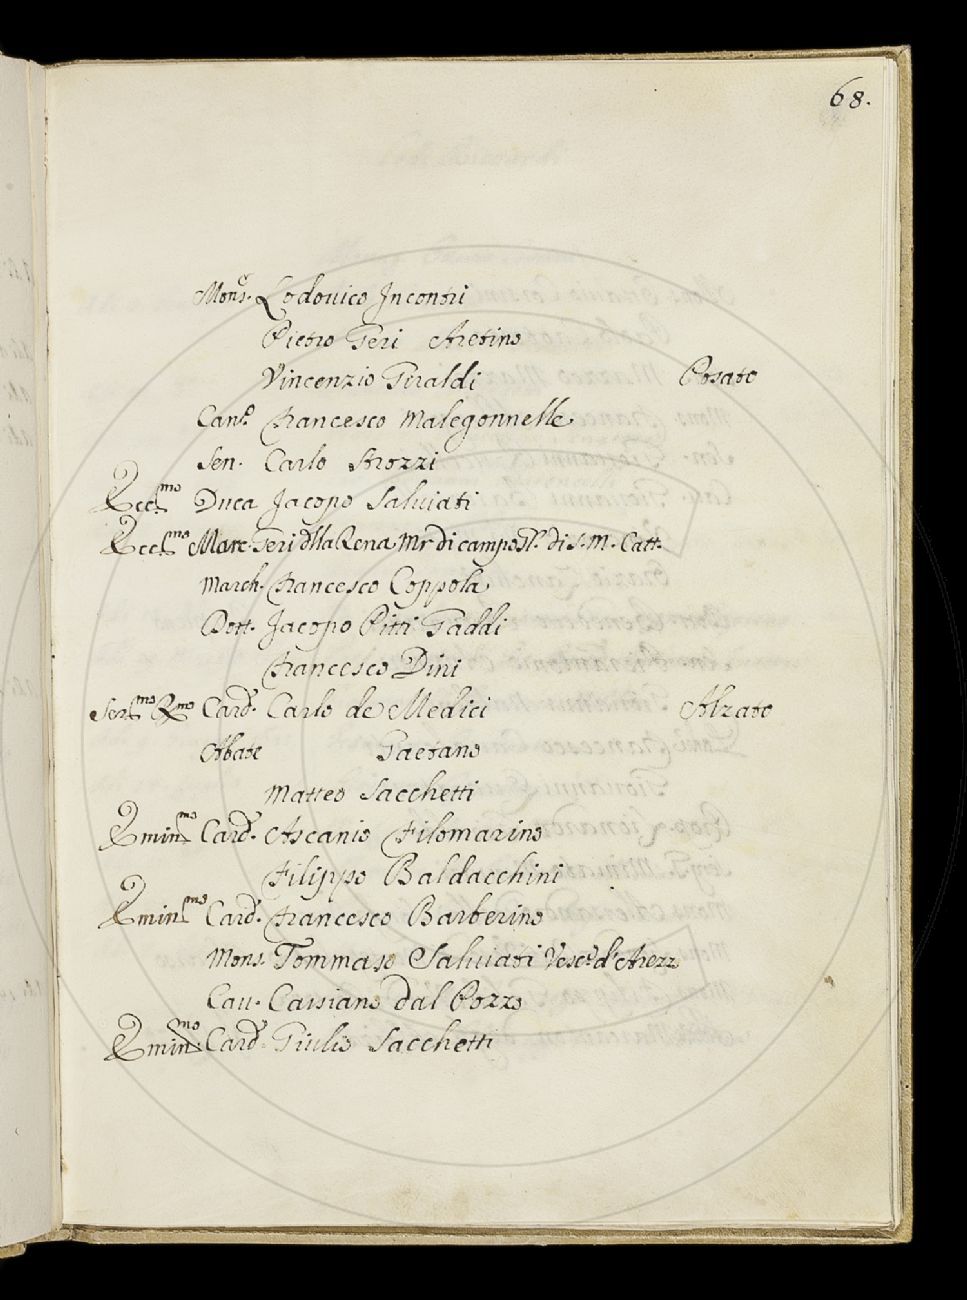 68.
Mons.e Lodovico Incontri
Pietro Geri Aretino
Vincenzio Giraldi Posato
Can.o Francesco Malegonnelle
Sen. Carlo Strozzi
Ecc.mo Duca Jacopo Salviati
Ecc.mo Marc. Geri dlla Rena Mr di campo di S. M. Catt.
March. Francesco Coppola
Dott. Jacopo Pitti Gaddi
Francesco Dini
Ser.mo R.mo Card. Carlo de Medici Alzato
Abate Gaetano
Matteo Sacchetti
Emin.mo Card. Ascanio Filomarino
Filippo Baldacchini
Emin.mo Card. Francesco Barberino
Mons. Tommaso Salviati Vesc. d'Arezz
Cau. Cassiano dal Pozzo
Emin.mo Card. Giulio Sacchetti